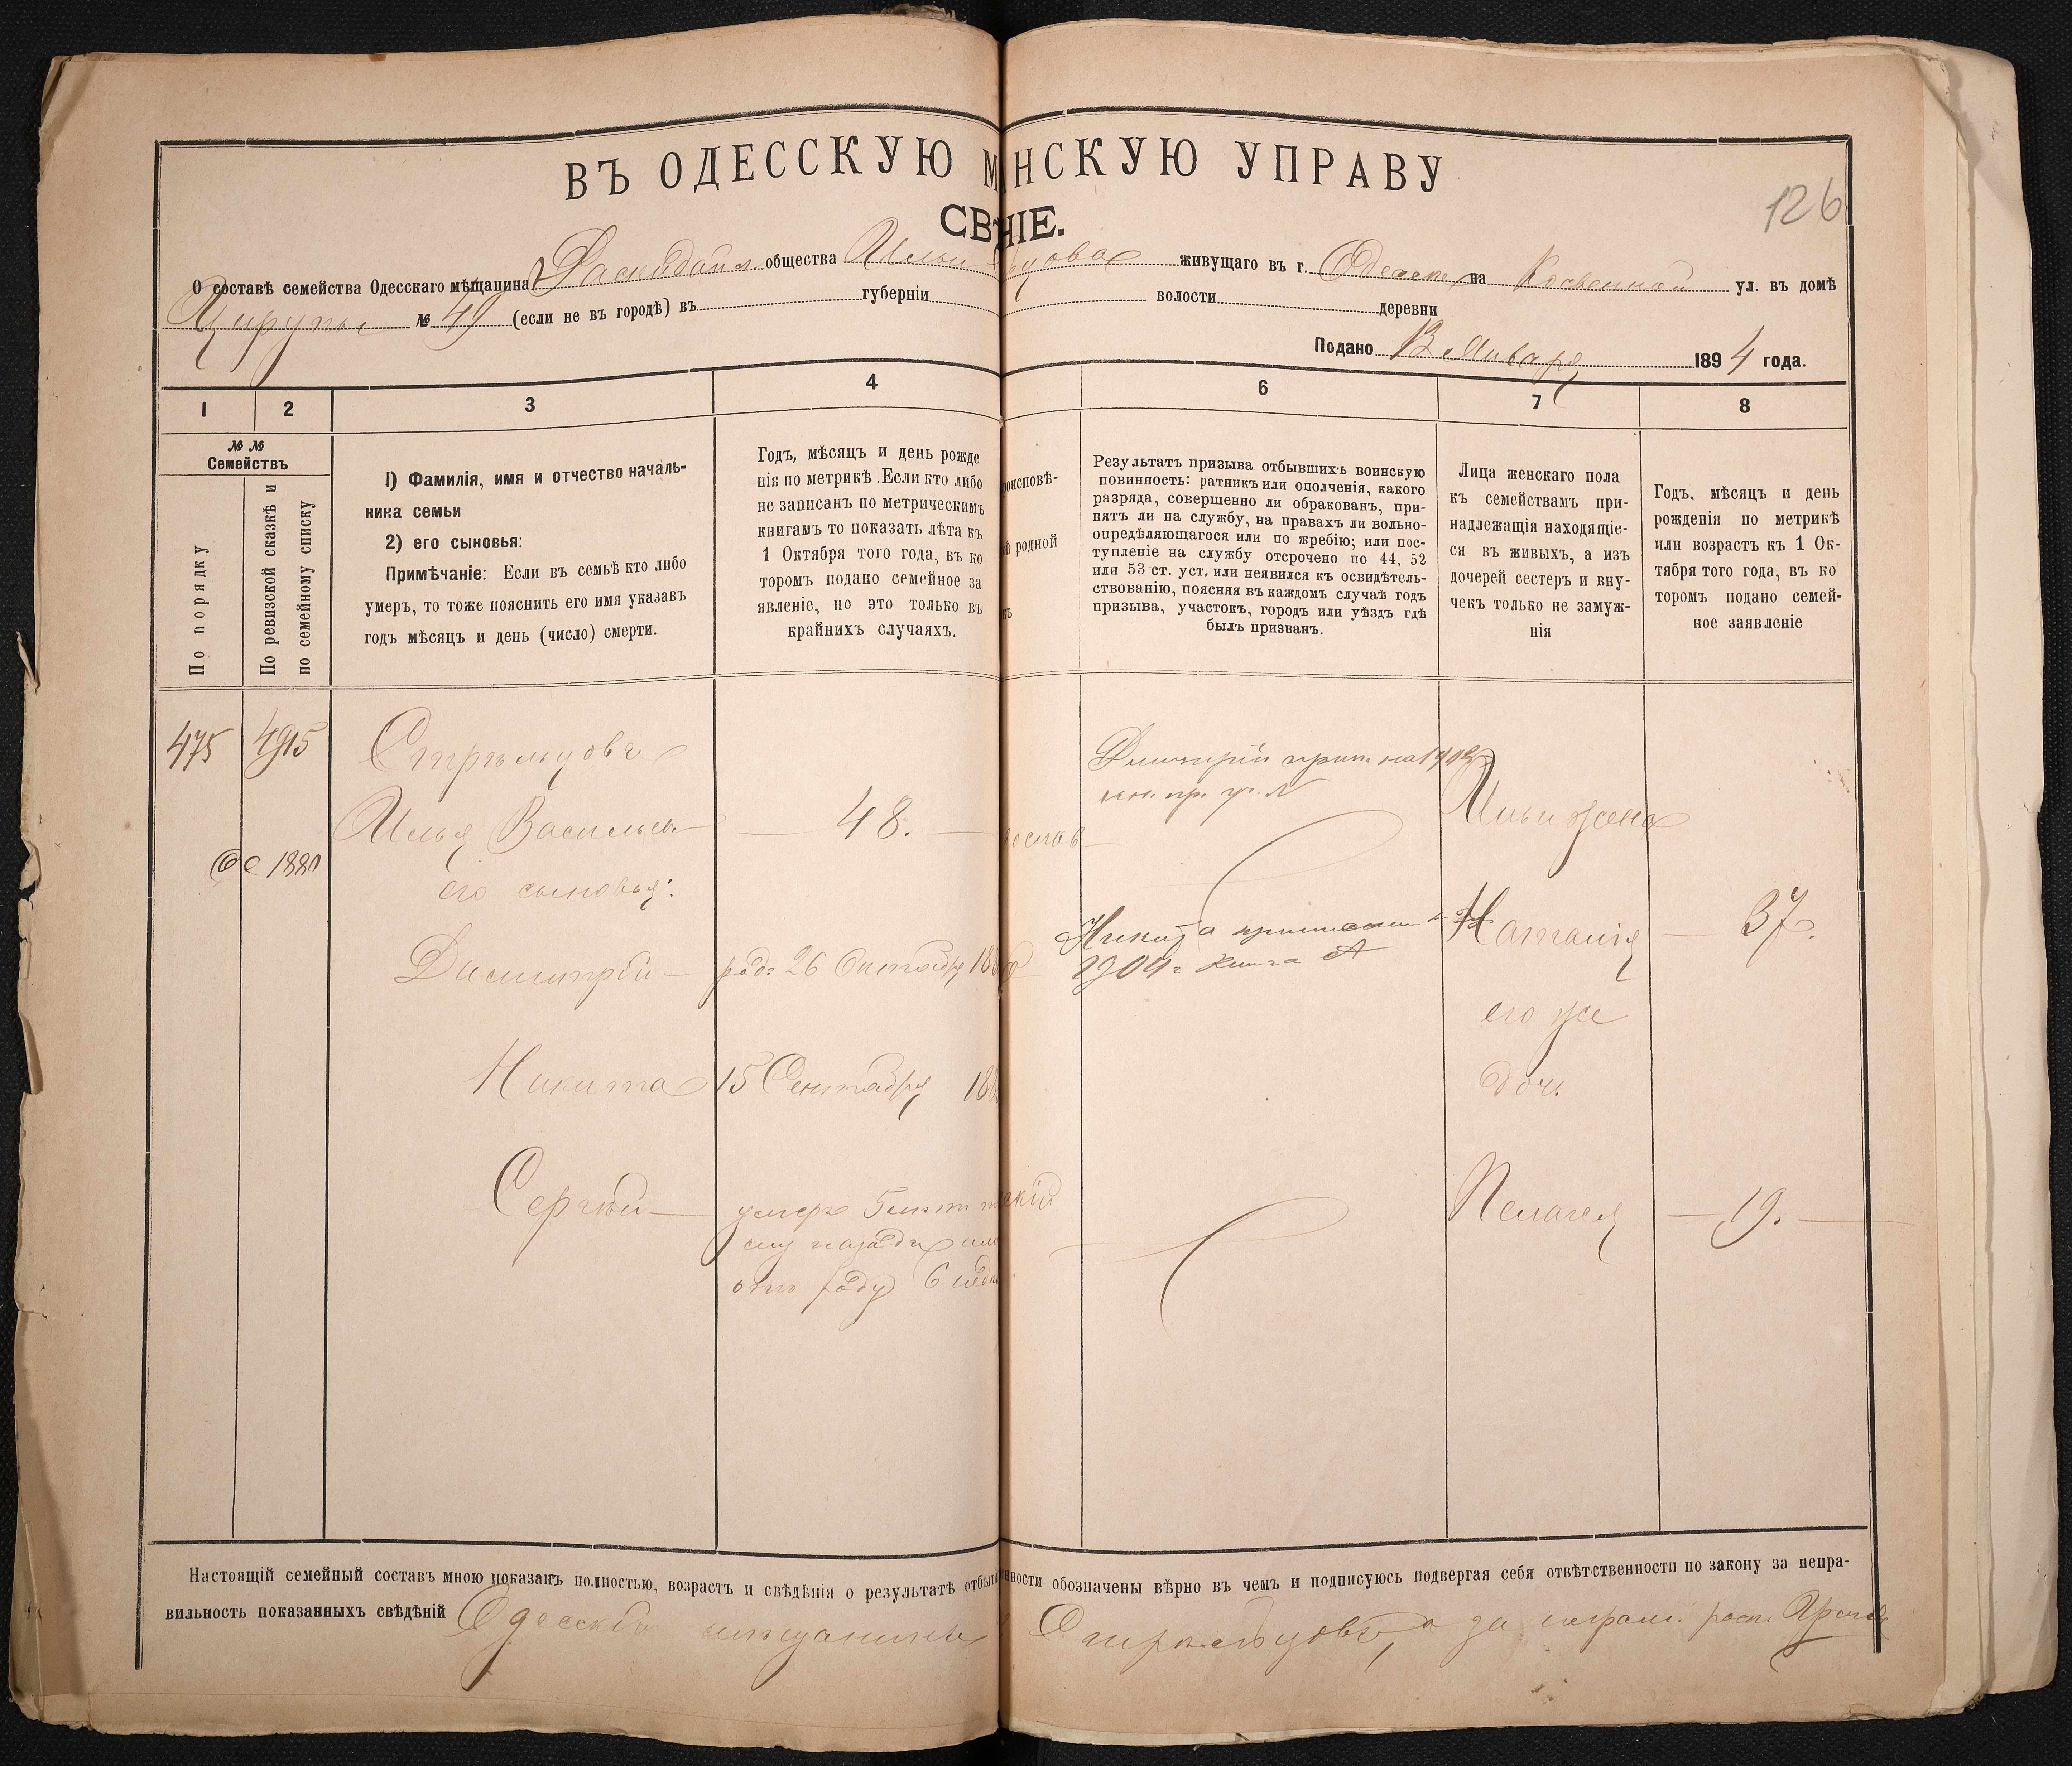 ВЪ ОДЕССКУЮ М НСКУЮ УПРАВУ
126
СВ НІЕ.
О составѣ семейства Одесскаго мѣщанина общества Ильи цова живущаго въ г. Одессе на Косвенной ул. въ домѣ
Цирупы № 49 (если не въ городѣ) въ губерніи волости деревни
Подано 13 Января 1894 года.
1 2 3 4 6 7 8
№ №
Семействъ
По порядку
По ревизской сказкѣ и
по семейному списку
1) Фамилія, имя и отчество началь-
ника семьи
2) его сыновья:
Примѣчаніе: Если въ семьѣ кто либо
умеръ, то тоже пояснить его имя указавъ
годъ мѣсяцъ и день (число) смерти.
Годъ, мѣсяцъ и день рожде
нія по метрикѣ. Если кто либо
не записанъ по метрическимъ
книгамъ то показать лѣта къ
1 Октября того года, въ ко
торомъ подано семейное за
явленіе, но это только въ
крайнихъ случаяхъ.
роисповѣ-
й родной
къ
Результатъ призыва отбывшихъ воинскую
повинность: ратникъ или ополченія, какого
разряда, совершенно ли обракованъ, при-
нятъ ли на службу, на правахъ ли вольно-
опредѣляющагося или по жребію; или пос-
тупленіе на службу отсрочено по 44, 52
или 53 ст. уст. или неявился къ освидѣтель-
ствованію, поясняя въ каждомъ случаѣ годъ
призыва, участокъ, городъ или уѣздъ гдѣ
былъ призванъ.
Лица женскаго пола
къ семействамъ при-
надлежащія находящіе-
ся въ живыхъ, а изъ
дочерей сестеръ и вну-
чекъ только не замуж-
нія
Годъ, мѣсяцъ и день
рожденія по метрикѣ
или возрастъ къ 1 Ок-
тября того года, въ ко
торомъ подано семей-
ное заявленіе
475 4915 Стрѣльцовъ
Дмитрій прип. на 1902
Илья Васильев — 48. — ослав
Ильи жена
1880
его сыновья:
Димитрій — род. 26 Октября 18
Никита приписан к
1904 г книга А
Наталія — 37.
его же
дочь
Никита 15 Сентября 18
Сергѣй — умеръ 5 лѣт
ему назадъ
отъ роду 6
Пелагея — 19. —
Настоящій семейный составъ мною показанъ полностью, возрастъ и свѣдѣнія о результатѣ отбы нности обозначены вѣрно въ чемъ и подписуюсь подвергая себя отвѣтственности по закону за непра-
вильность показанныхъ свѣдѣній Одесскій мѣщанинъ Стрѣльцовъ, а за неграм. расп.